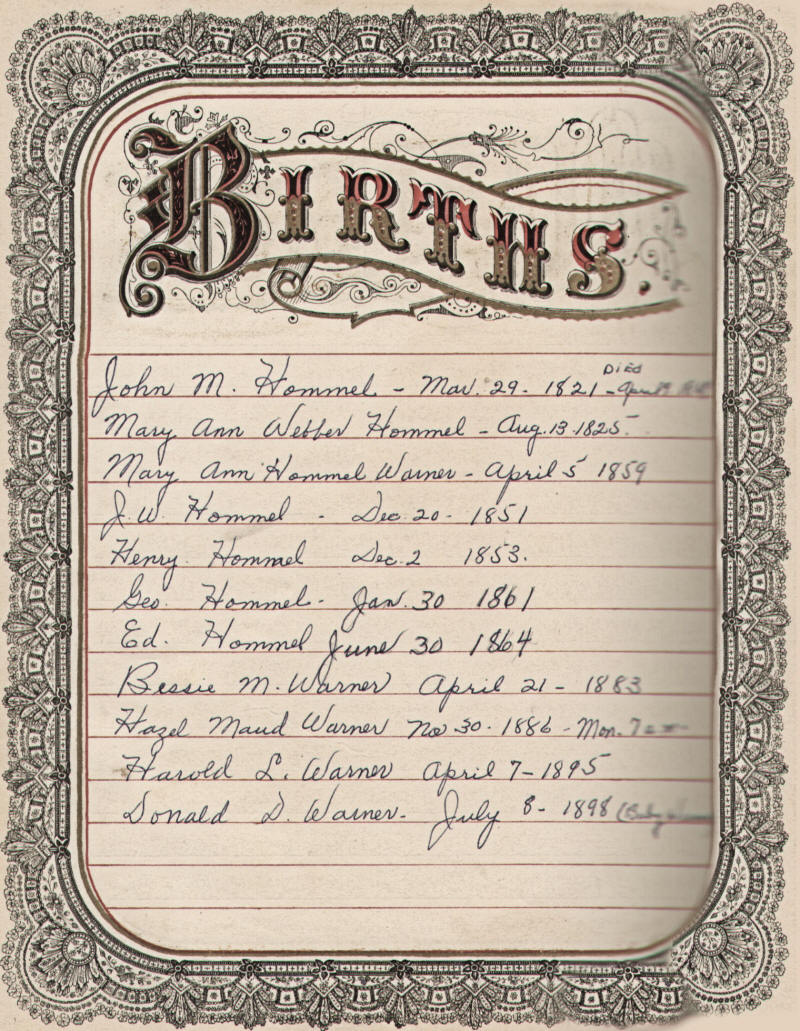 BIRTHS.
Died
John M. Hommel - Mar. 29 - 1821 - April
Mary Ann Webber Hommel - Aug. 13 - 1825
Mary Ann Hommel Warner - April 5 1859
J. W. Hommel - Dec 20 - 1851
Henry Hommel Dec. 2 1853.
Geo. Hommel - Jan. 30 1861
Ed. Hommel June 30 1864
Bessie M. Warner April 21 - 1883
Hazel Maud Warner Nov 30 - 1886 - Mon. 7
Harold L. Warner April 7 - 1895
Donald D. Warner - July 8 - 1898